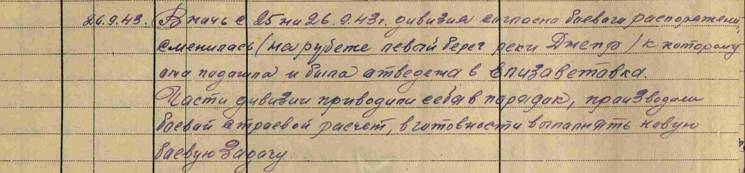 26.9.43. В ночь с 25 на 26.9.43г. дивизия согласно боевого распоряжени
сменилась /на рубеже левый берег реки Днепр/ к которому
она подошла и была отведена в Елизаветовка.
Части дивизии приводили себя в порядок, производили
боевой строевой расчет, в готовности выполнять новую
боевую задачу.